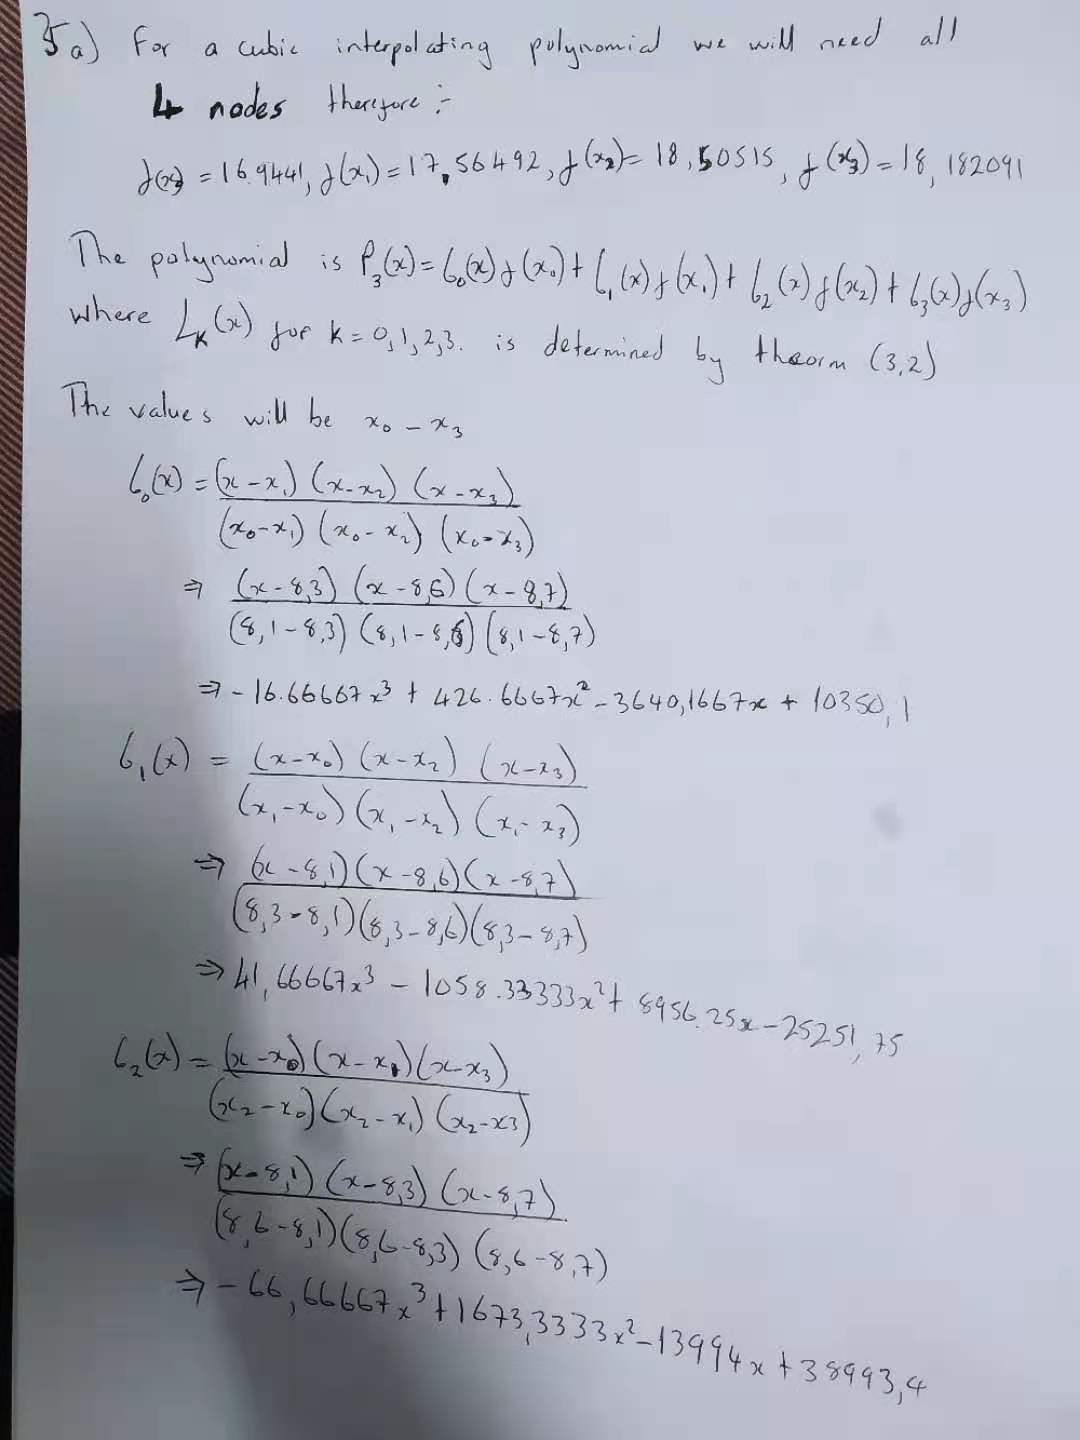 5a) For a cubic interpolating polynomial we will need all
4 nodes therefore :-
f(x₀) = 16.9441, f(x₁) = 17,56492, f(x₂) = 18,50515, f(x₃) = 18,182091
The polynomial is P₃(x) = L₀(x)f(x₀) + L₁(x)f(x₁) + L₂(x)f(x₂) + L₃(x)f(x₃)
where Lₖ(x) for k = 0,1,2,3. is determined by theorm (3,2)
The values will be x₀ - x₃
L₀(x) = (x-x₁) (x-x₂) (x-x₃)
(x₀-x₁) (x₀-x₂) (x₀-x₃)
⇒ (x-8,3) (x-8,6) (x-8,7)
(8,1-8,3) (8,1-8,6) (8,1-8,7)
⇒ -16.66667x³ + 426.6667x² - 3640,1667x + 10350,1
L₁(x) = (x-x₀) (x-x₂) (x-x₃)
(x₁-x₀) (x₁-x₂) (x₁-x₃)
⇒ (x-8,1) (x-8,6) (x-8,7)
(8,3-8,1) (8,3-8,6) (8,3-8,7)
⇒ 41,66667x³ - 1058.33333x² + 8956.25x - 25251,75
L₂(x) = (x-x₀) (x-x₁) (x-x₃)
(x₂-x₀) (x₂-x₁) (x₂-x₃)
⇒ (x-8,1) (x-8,3) (x-8,7)
(8,6-8,1) (8,6-8,3) (8,6-8,7)
⇒ -66,66667x³ + 1673,3333x² - 13994x + 38993,4